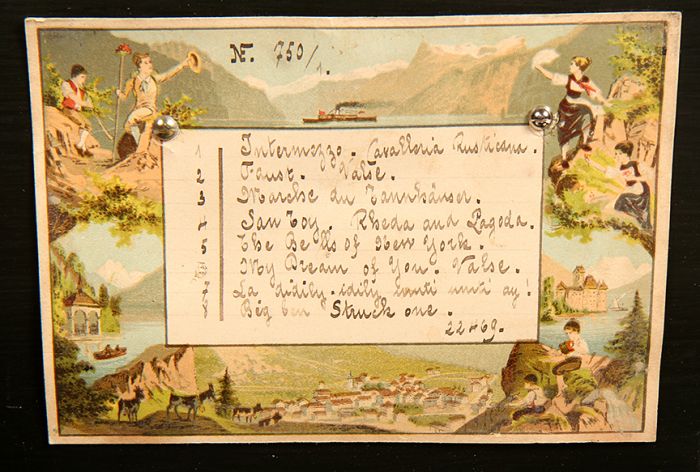 No. 750/1.
1 Intermezzo. Cavalleria Rusticana.
2 Faust. Valse.
3 Marche du Tannhäuser.
4 San Toy. Rheda and Pagoda.
5 The Belle of New York.
My Dream of You. Valse.
7 La didily-idily umti umti ay!
8 Big ben Struck one.
22469.